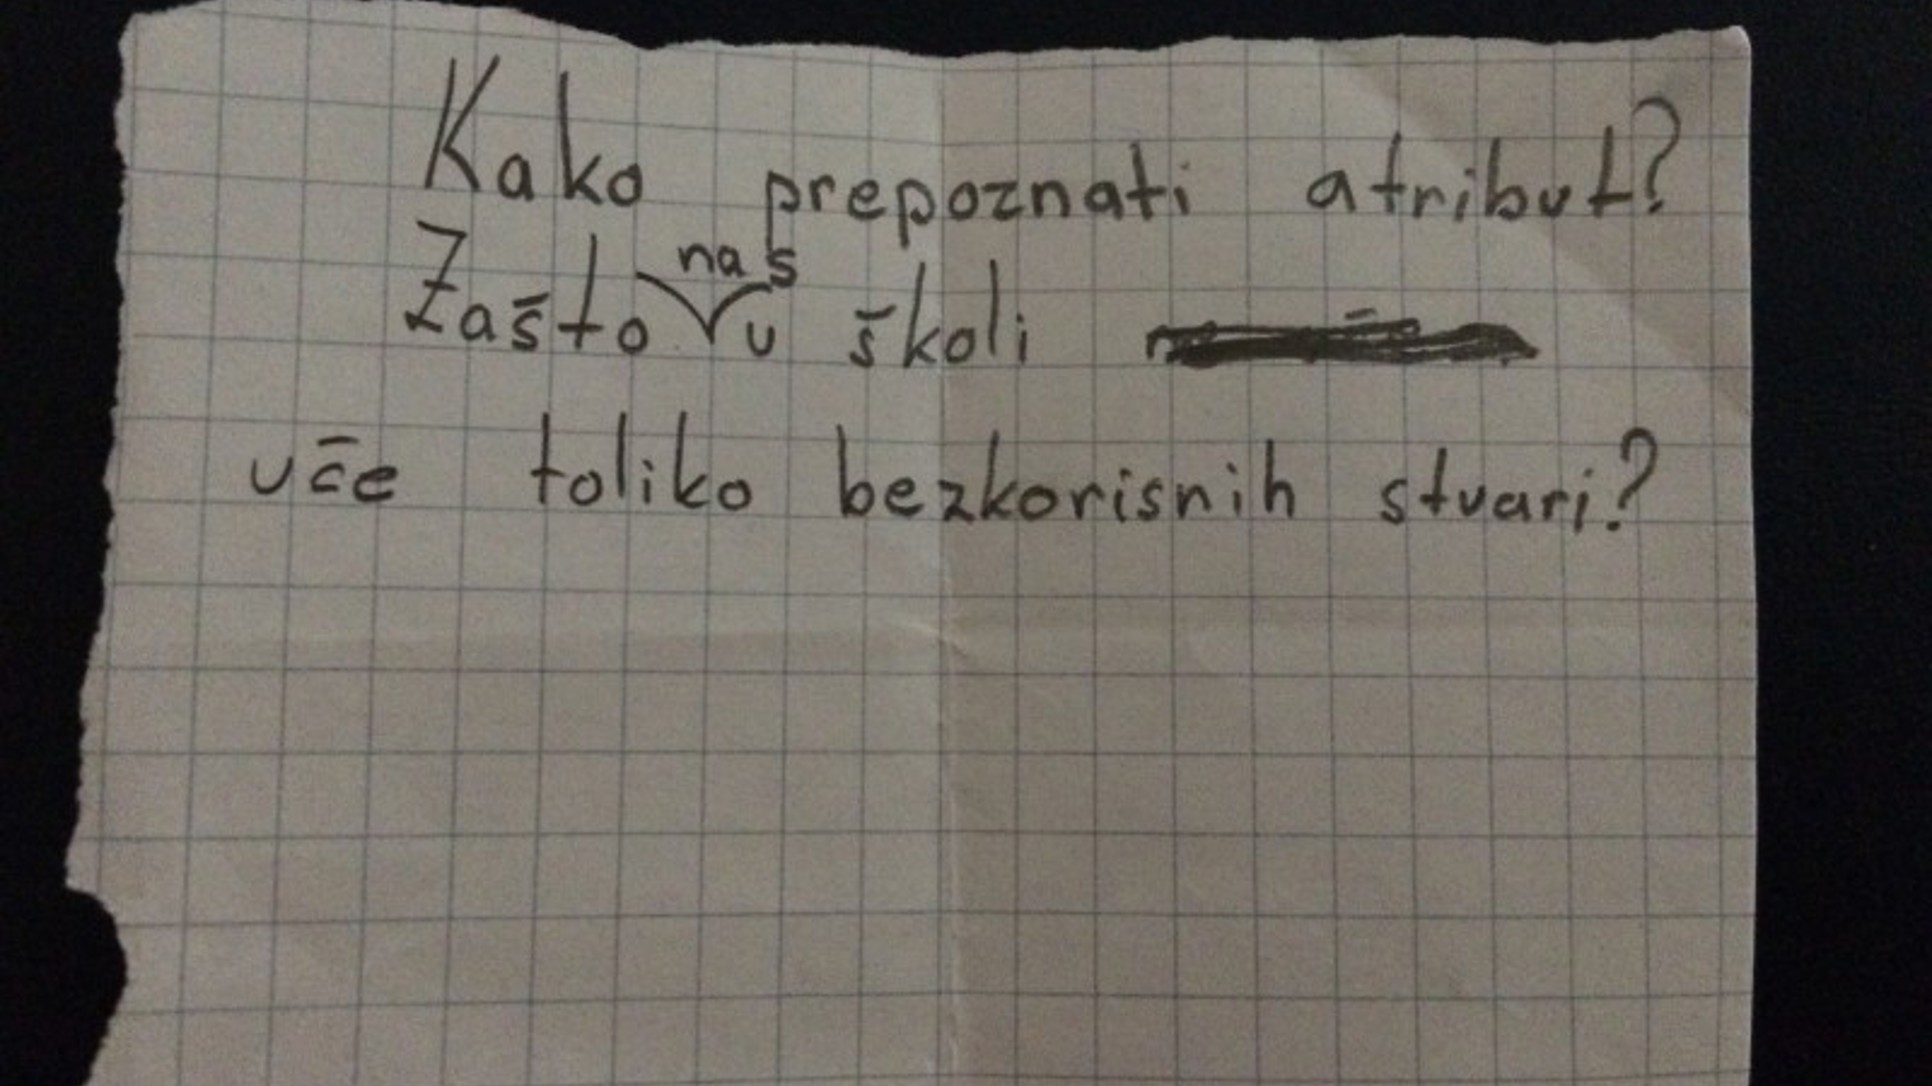 Kako prepoznati atribut?
Zašto nas u školi
uče toliko bezkorisnih stvari?